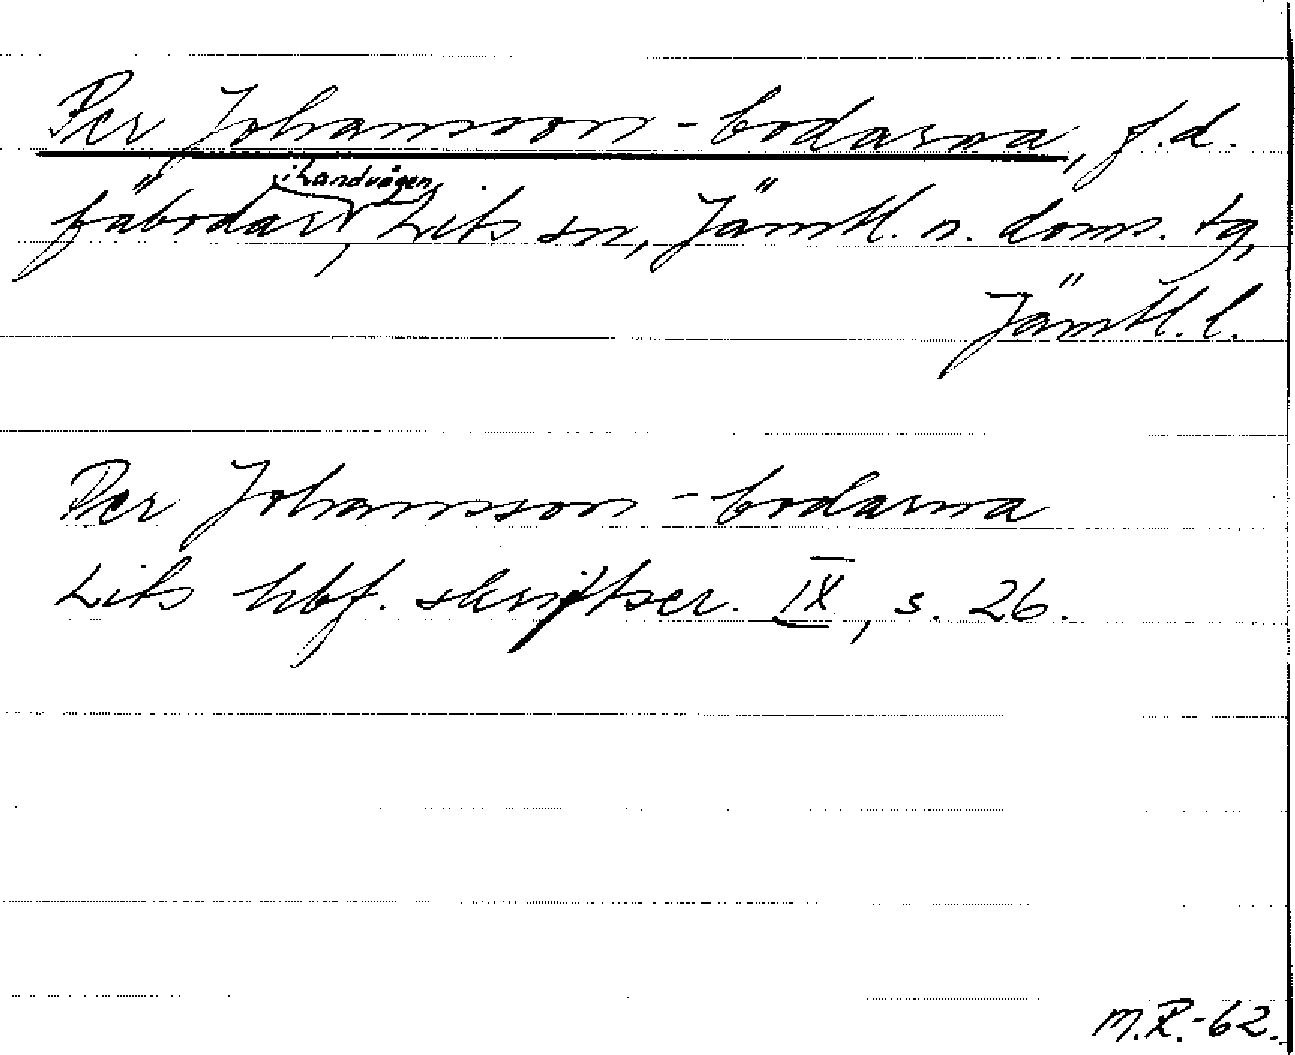 Per Johansson-bodarna, f.d.
fäbodar i Landvågen, Lits sn, Jämtl. n. doms. tg,
Jämtl. l.
Per Johansson-bodarna
Lits hbf. skriftser. IX, s. 26.
M.R.-62.